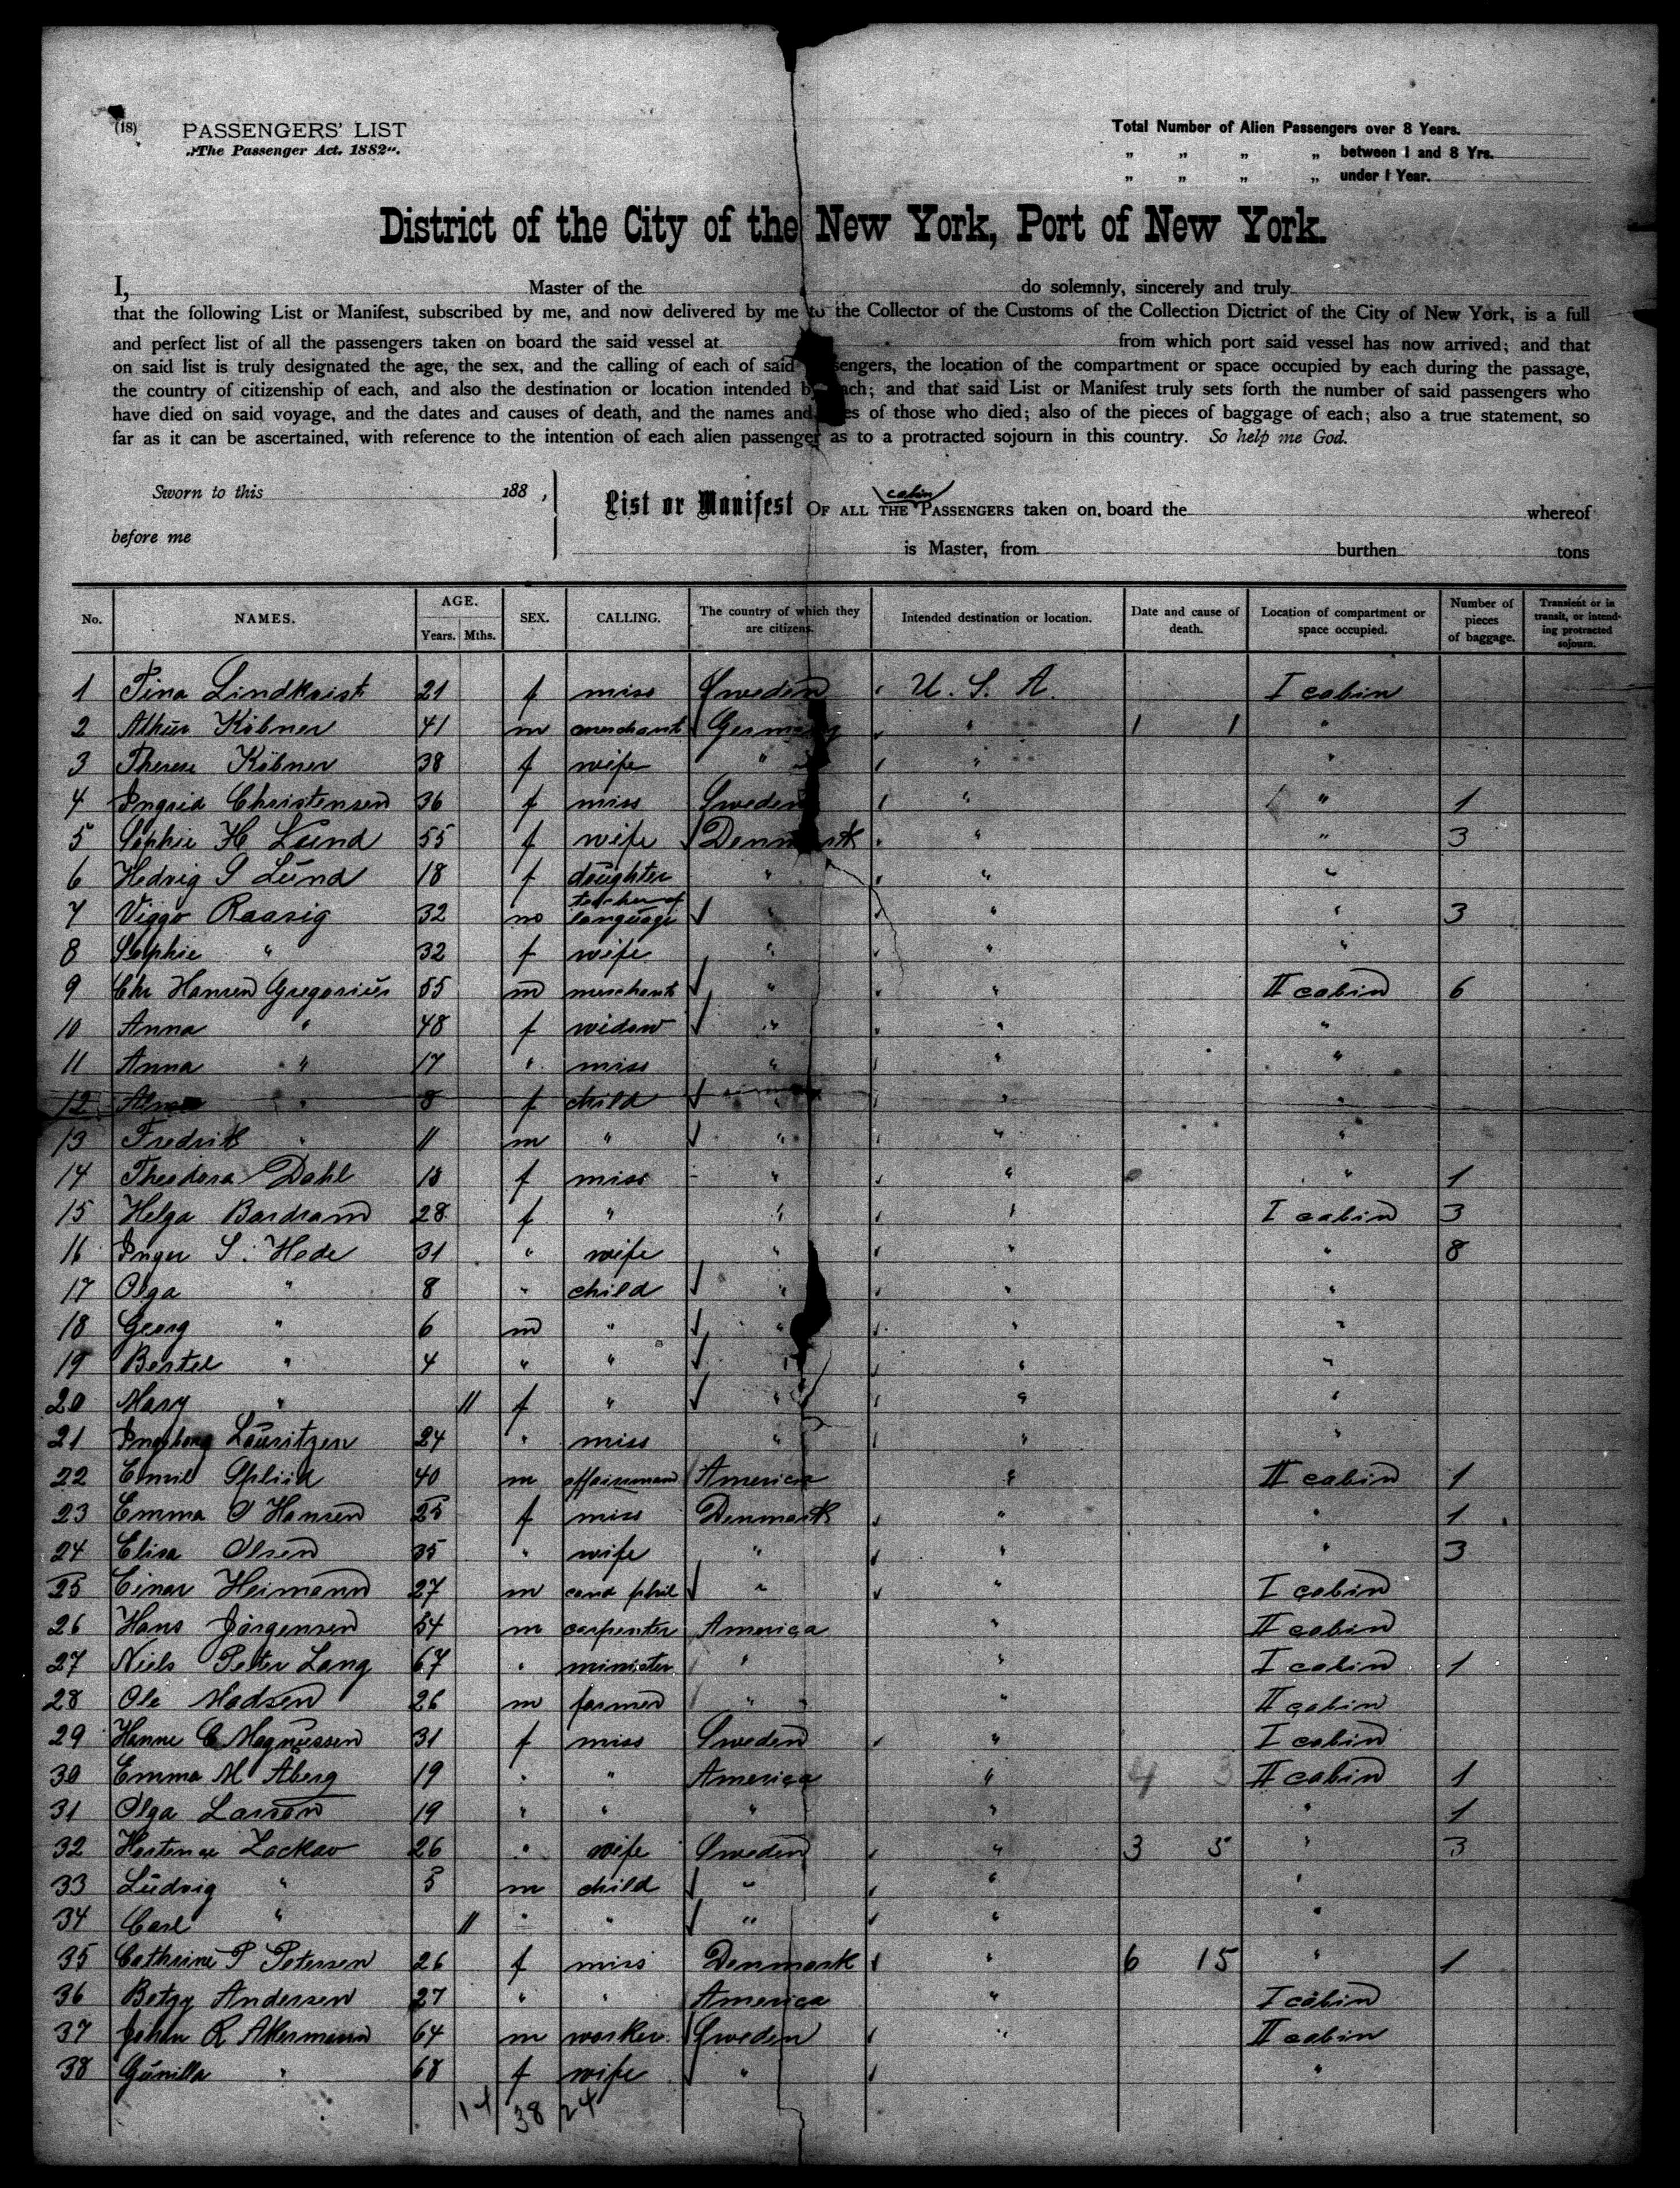 (18) PASSENGERS' LIST
„The Passenger Act. 1882".
Total Number of Alien Passengers over 8 Years.
„ „ „ „ between 1 and 8 Yrs.
„ „ „ „ under 1 Year.
District of the City of the New York, Port of New York.
I, Master of the do solemnly, sincerely and truly
that the following List or Manifest, subscribed by me, and now delivered by me to the Collector of the Customs of the Collection District of the City of New York, is a full
and perfect list of all the passengers taken on board the said vessel at from which port said vessel has now arrived; and that
on said list is truly designated the age, the sex, and the calling of each of said sengers, the location of the compartment or space occupied by each during the passage,
the country of citizenship of each, and also the destination or location intended b ach; and that said List or Manifest truly sets forth the number of said passengers who
have died on said voyage, and the dates and causes of death, and the names and es of those who died; also of the pieces of baggage of each; also a true statement, so
far as it can be ascertained, with reference to the intention of each alien passenger as to a protracted sojourn in this country. So help me God.
Sworn to this 188 ,
before me
cabin
List or Manifest OF ALL THE PASSENGERS taken on board the whereof
is Master, from burthen tons
No. NAMES. AGE. Years. Mths. SEX. CALLING. The country of which they are citizens. Intended destination or location. Date and cause of death. Location of compartment or space occupied. Number of pieces of baggage. Transient or in transit, or intending protracted sojourn.
1 Tina Lindkvist 21 f miss Sweden U. S. A. I cabin
2 Köbner 41 m merchant Germany " 1 1 "
3 Therese Köbner 38 f wife " " "
4 Ingrid Christensen 36 f miss Sweden " " 1
5 Sophie H Lund 55 f wife Denmark " " 3
6 Hedvig S Lund 18 f daughter " " "
7 Viggo Raasig 32 m teacher of language " " " 3
8 Sophie " 32 f wife " " "
9 Chr Hansen Gregorius 55 m merchant " " II cabin 6
10 Anna " 48 f widow " " "
11 Anna " 17 " miss " " "
12 " 8 f child " " "
13 Fredrik " 11 m " " " "
14 Theodora Dahl f miss " " " 1
15 Helga Bardram 28 f " " " I cabin 3
16 Inger S. Hede 31 " wife " " " 8
17 Olga " 8 " child " " "
18 Georg " 6 m " " " "
19 Bertel " 4 " " " " "
20 Mary " 11 f " " " "
21 Ingeborg Lauritzen 24 " miss " " "
22 Emil Spliid 40 m affairsmand America " II cabin 1
23 Emma O Hansen 25 f miss Denmark " " 1
24 Elisa Olsen 35 " wife " " " 3
25 Einar Heimann 27 m cand phil " " I cabin
26 Hans Jörgensen 54 m carpenter America " II cabin
27 Niels Peter Lang 67 " minister " " I cabin 1
28 Ole Madsen 26 m farmer " " II cabin
29 Hanne C Magnussen 31 f miss Sweden " I cabin
30 Emma M Åberg 19 " " America " 4 3 II cabin 1
31 Olga Larson 19 " " " " " 1
32 Hortense Zackav 26 " wife Sweden " 3 5 " 3
33 Ludvig " 5 m child " " "
34 Carl " 11 " " " " "
35 Cathrine P Petersen 26 f miss Denmark " 6 15 " 1
36 Betzy Andersen 27 " " America " I cabin
37 Johan R Akermann 64 m worker Sweden " II cabin
38 Gunilla " 68 f wife " "
14 38 24